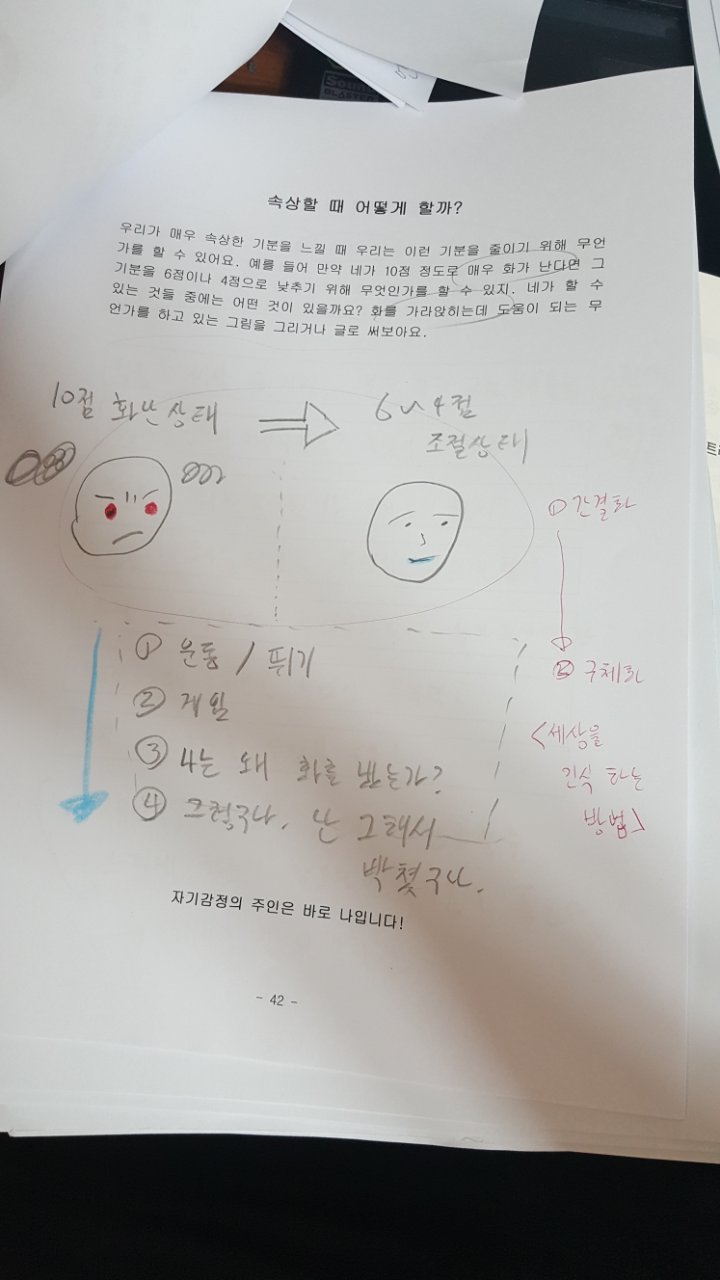 Sound
BLASTER
속상할 때 어떻게 할까?
우리가 매우 속상한 기분을 느낄 때 우리는 이런 기분을 줄이기 위해 무언
가를 할 수 있어요. 예를 들어 만약 네가 10점 정도로 매우 화가 난다면 그
기분을 6점이나 4점으로 낮추기 위해 무엇인가를 할 수 있지. 네가 할 수
있는 것들 중에는 어떤 것이 있을까요? 화를 가라앉히는데 도움이 되는 무
언가를 하고 있는 그림을 그리거나 글로 써보아요.
10점 화난상태
6~4점
조절상태
① 간결화
① 운동 / 뛰기
② 구체화
② 게임
③ 나는 왜 화를 냈는가?
<세상을
인식 하는
방법>
④ 그렇구나. 난 그래서
구나.
자기감정의 주인은 바로 나입니다!
- 42 -